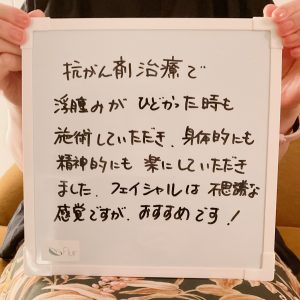 抗がん剤治療で
浮腫みが ひどかった時も
施術していただき、身体的にも
精神的にも 楽にしていただき
ました。フェイシャルは 不思議な
感覚ですが、おすすめです！